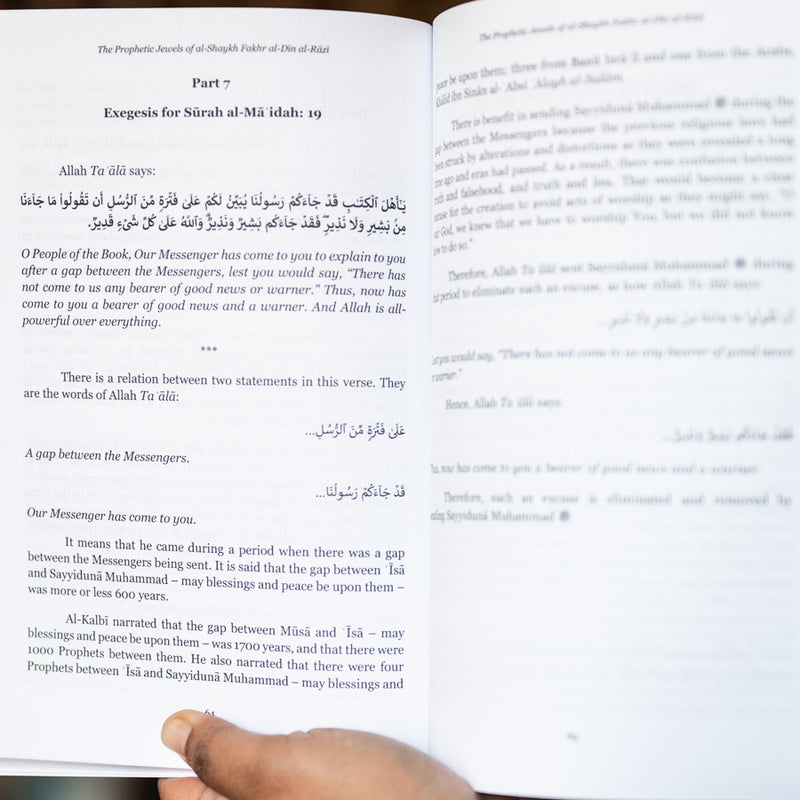 The Prophetic Jewels of al-Shaykh Fakhr al-Dīn al-Rāzī
Part 7
Exegesis for Sūrah al-Māʾidah: 19
Allah Taʿālā says:
يَـٰٓأَهْلَ ٱلْكِتَـٰبِ قَدْ جَآءَكُمْ رَسُولُنَا يُبَيِّنُ لَكُمْ عَلَىٰ فَتْرَةٍ مِّنَ ٱلرُّسُلِ أَن تَقُولُوا۟ مَا جَآءَنَا
مِنۢ بَشِيرٍ وَلَا نَذِيرٍ ۖ فَقَدْ جَآءَكُم بَشِيرٌ وَنَذِيرٌ ۗ وَٱللَّهُ عَلَىٰ كُلِّ شَىْءٍ قَدِيرٌ.
O People of the Book, Our Messenger has come to you to explain to you
after a gap between the Messengers, lest you would say, “There has
not come to us any bearer of good news or warner.” Thus, now has
come to you a bearer of good news and a warner. And Allah is all-
powerful over everything.
***
There is a relation between two statements in this verse. They
are the words of Allah Taʿālā:
عَلَىٰ فَتْرَةٍ مِّنَ ٱلرُّسُلِ...
A gap between the Messengers.
قَدْ جَآءَكُمْ رَسُولُنَا...
Our Messenger has come to you.
It means that he came during a period when there was a gap
between the Messengers being sent. It is said that the gap between ʿĪsā
and Sayyidunā Muhammad – may blessings and peace be upon them –
was more or less 600 years.
Al-Kalbī narrated that the gap between Mūsā and ʿĪsā – may
blessings and peace be upon them – was 1700 years, and that there were
1000 Prophets between them. He also narrated that there were four
Prophets between ʿĪsā and Sayyidunā Muhammad – may blessings and
The Prophetic Jewels of al-Shaykh Fakhr al-Dīn al-Rāzī
peace be upon them; three from Banī Isrāʾīl and one from the Arabs,
Khālid ibn Sinān al-ʿAbsī ʿAlayh al-Salām.
There is benefit in sending Sayyidunā Muhammad ﷺ during the
gap between the Messengers because the previous religious laws had
been struck by alterations and distortions as they were revealed a long
time ago and eras had passed. As a result, there was confusion between
truth and falsehood, and truth and lies. That would become a clear
excuse for the creation to avoid acts of worship as they might say, “O
our God, we knew that we have to worship You, but we did not know
how to do so.”
Therefore, Allah Taʿālā sent Sayyidunā Muhammad ﷺ during
that period to eliminate such an excuse, as how Allah Taʿālā says:
Lest you would say, “There has not come to us any bearer of good news
or warner.”
Hence, Allah Taʿālā says:
Thus, now has come to you a bearer of good news and a warner.
Therefore, such an excuse is eliminated and removed by
sending Sayyidunā Muhammad ﷺ.